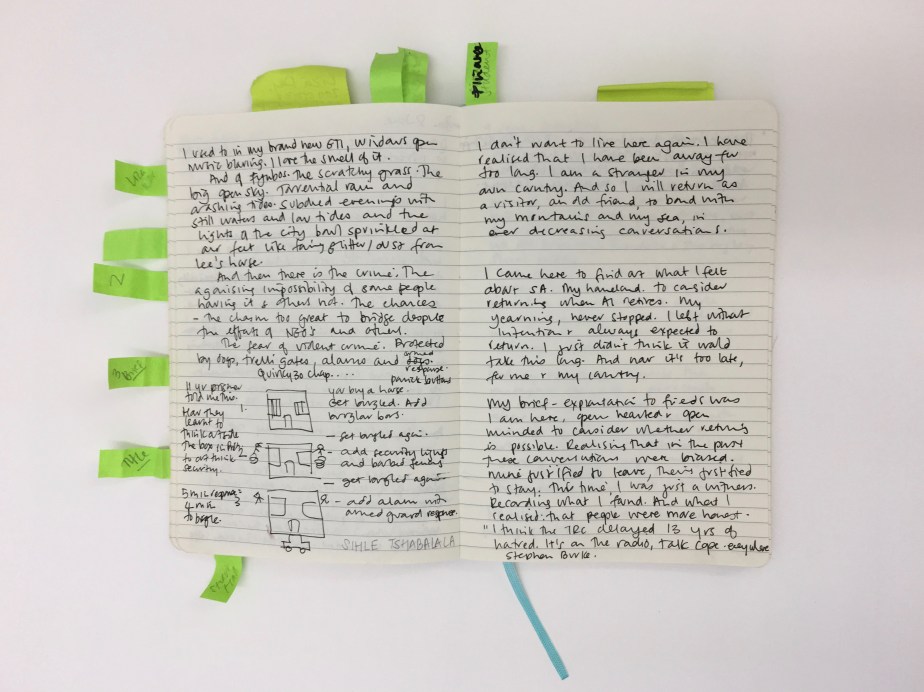 I used to in my brand new GTI, windows open
music blaring. I love the smell of it.
And of Fynbos. The scratchy grass. The
big open sky. Torrential rain and
crashing tides. Subdued evenings with
still waters and low tides and the
lights of the city bowl sprinkled at
our feet like fairy glitter/dust from
Lee's house.
And then there is the crime. The
agonising impossibility of some people
having it & others not. The chances
- the chasm too great to bridge despite
the efforts of NGO's and others.
The fear of violent crime. Protected
by dogs, trelli gates, alarms and armed
response.
panic buttons
Quirky 30 chap....
11 yr prisoner
told me this.
How they
learnt to
think outside
the box is
to out think
security.
you buy a house.
Get burgled. Add
burglar bars.
- get burgled again.
- add security lights
and barbed fencing
- get burgled again
5 min response
4 min
to burgle.
- add alarm with
armed guard response.
SIHLE TSHABALALA
I don't want to live here again. I have
realised that I have been away for
too long. I am a stranger in my
own country. And so I will return as
a visitor, an old friend, to bond with
my mountains and my sea, in
ever decreasing conversations.
I came here to find out what I felt
about SA. My homeland. To consider
returning when Al retires. My
yearning, never stopped. I left without
intention & always expected to
return. I just didn't think it would
take this long. And now it's too late,
for me & my country.
My brief - explanation to friends was
I am here, open hearted & open
minded to consider whether returning
is possible. Realising that in the past
these conversations were biased.
Mine justified to leave, theirs justified
to stay. This time, I was just a witness.
Recording what I found. And what I
realised. that people were more honest.
"I think the TRC delayed 13 yrs of
hatred. It's on the radio, talk Cape - everywhere
Stephen Burke.
2